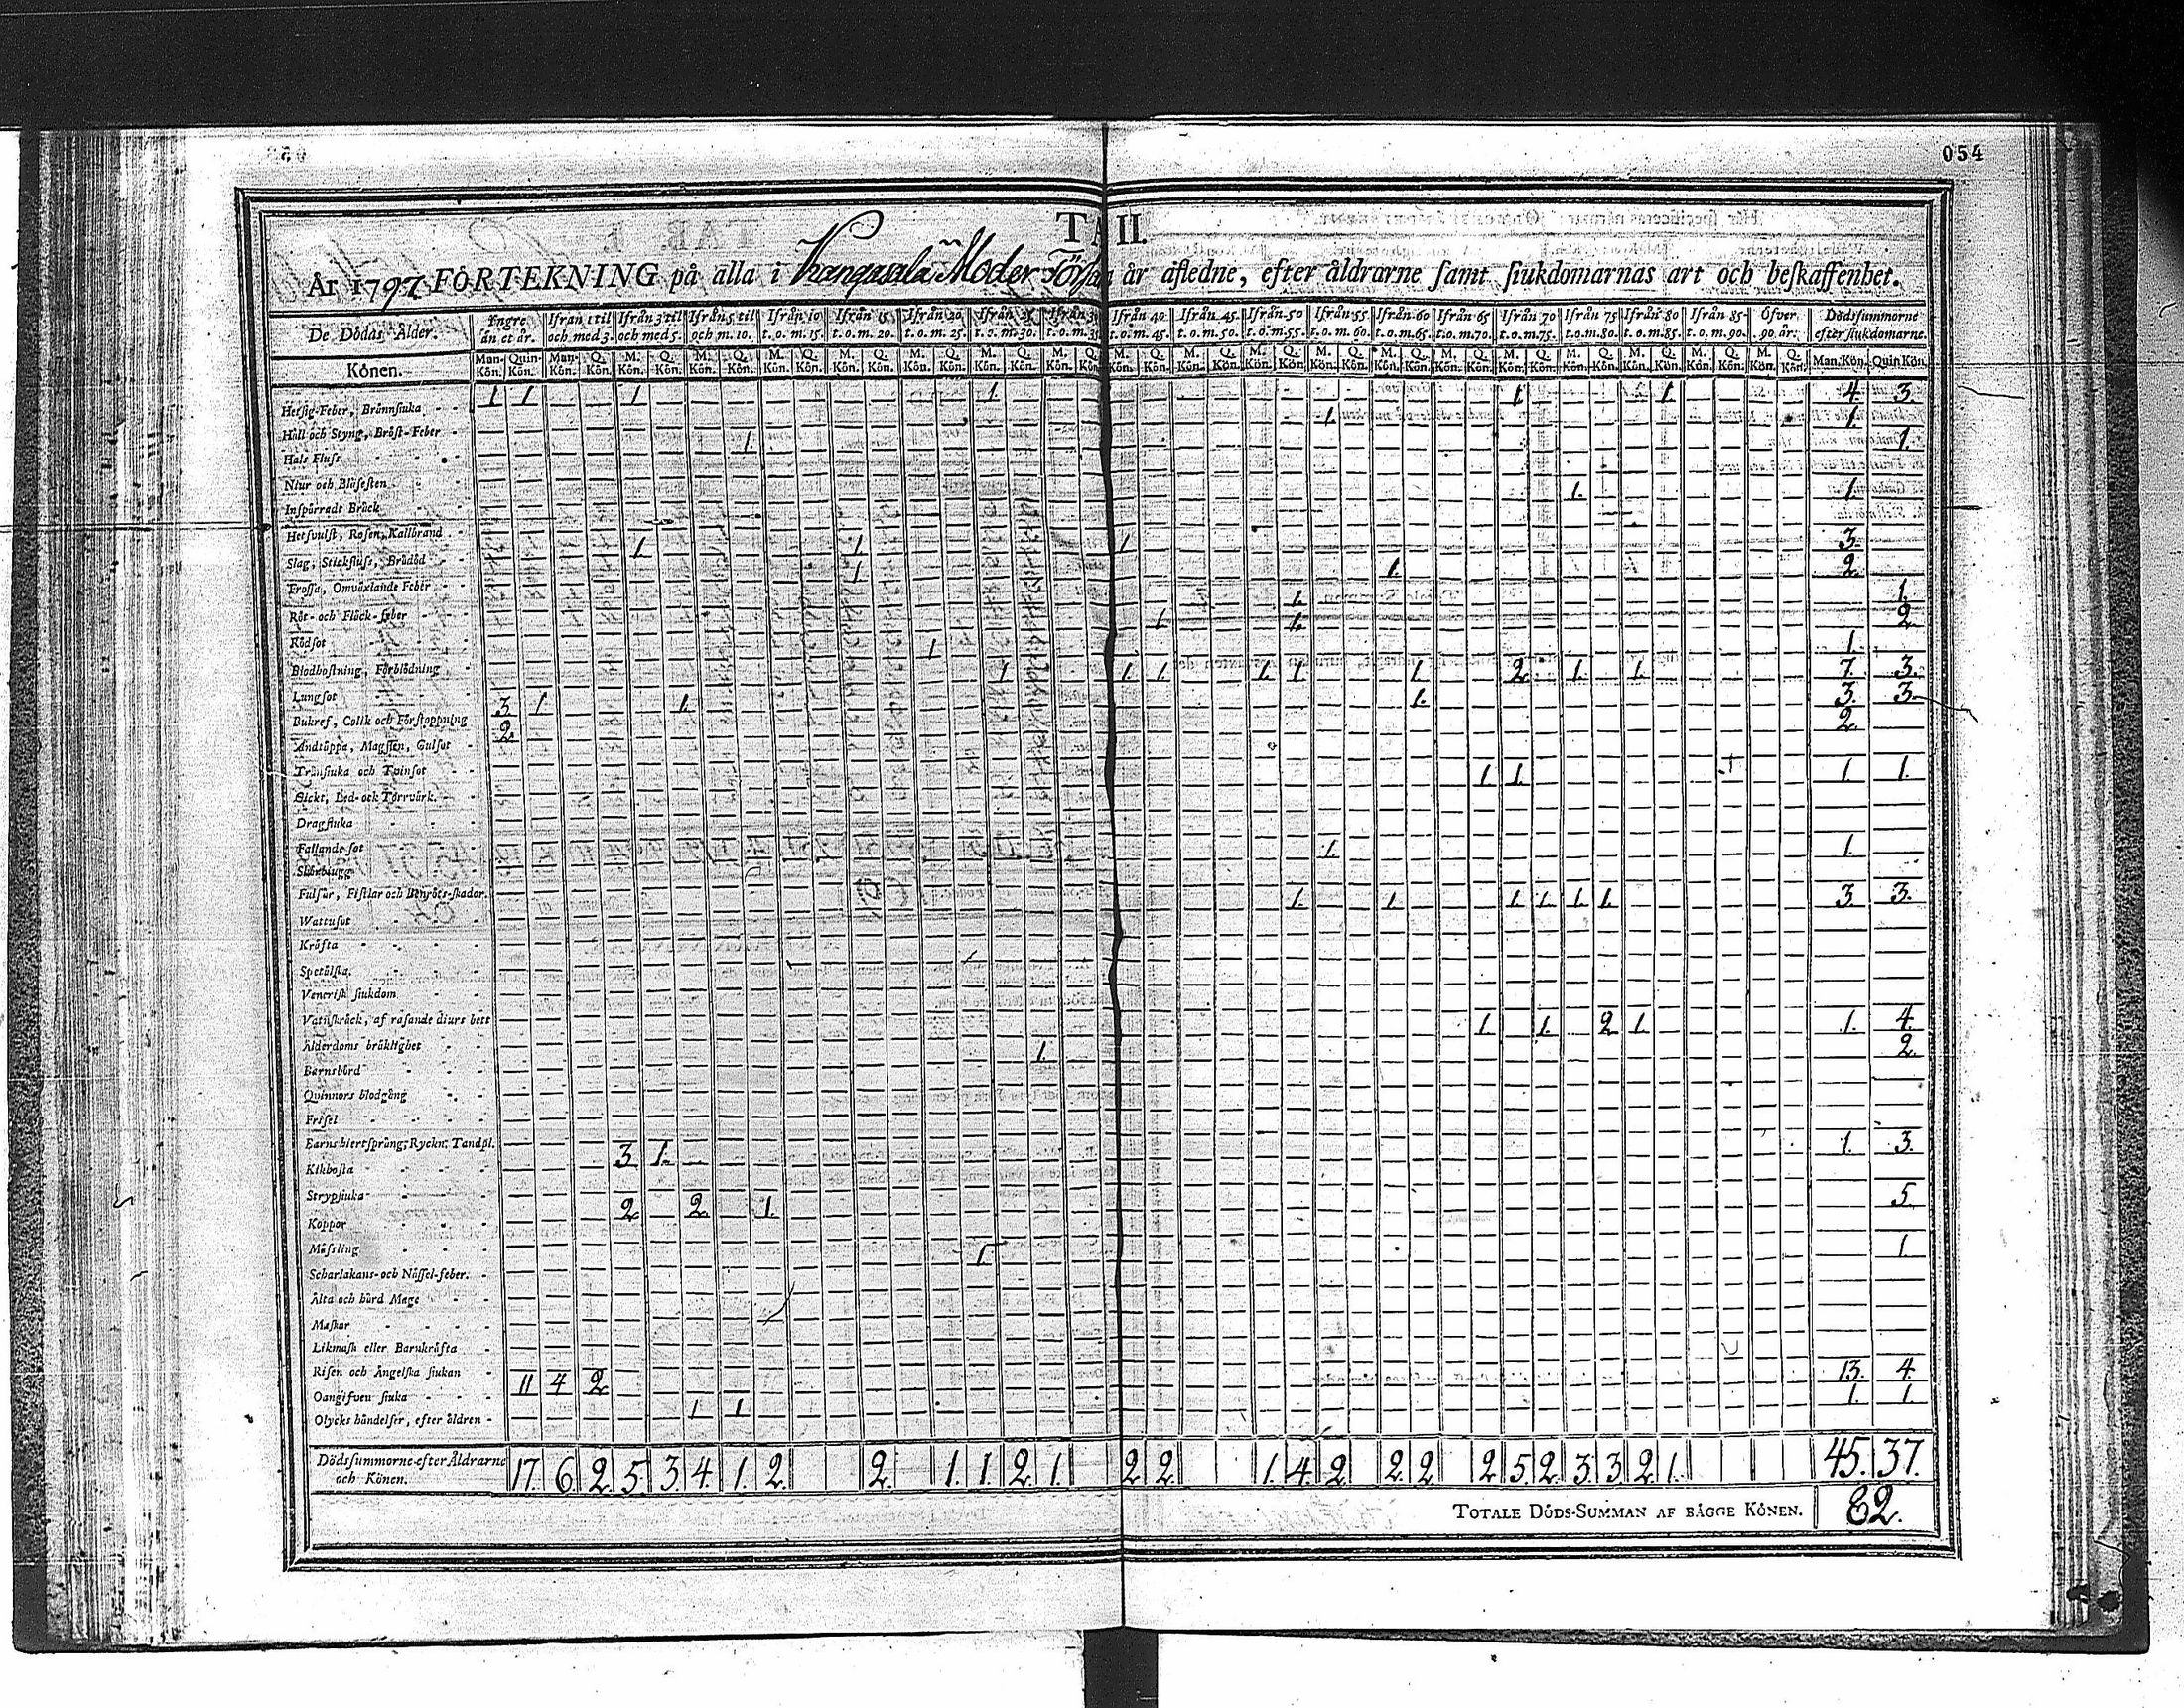 054
TA II.
År 1797 FÖRTEKNING på alla i Kangasala Moder Förs år afledne, efter åldrarne samt siukdomarnas art och beskaffenhet.
De Dödas Ålder. Yngre än et år. Ifrån 1 til och med 3. Ifrån 3 til och med 5. Ifrån 5 til och m. 10. Ifrån 10 t.o.m. 15. Ifrån 15 t.o.m. 20. Ifrån 20 t.o.m. 25. Ifrån 25 t.o.m. 30. Ifrån 40 t.o.m. 45. Ifrån 45 t.o.m. 50. Ifrån 50 t.o.m. 55. Ifrån 55 t.o.m. 60. Ifrån 60 t.o.m. 65. Ifrån 65 t.o.m. 70. Ifrån 70 t.o.m. 75. Ifrån 75 t.o.m. 80. Ifrån 80 t.o.m. 85. Ifrån 85 t.o.m. 90. Öfver 90 år. Dödssummorne efter siukdomarne.
Könen. Man-Kön. Quin-Kön. Man-Kön. Q. Kön. M. Kön. Q. Kön. M. Kön. Q. Kön. M. Kön. Q. Kön. M. Kön. Q. Kön. M. Kön. Q. Kön. M. Kön. Q. Kön. M. Kön. Q. Kön. M. Kön. Q. Kön. M. Kön. Q. Kön. M. Kön. Q. Kön. M. Kön. Q. Kön. M. Kön. Q. Kön. M. Kön. Q. Kön. M. Kön. Q. Kön. M. Kön. Q. Kön. M. Kön. Q. Kön. M. Kön. Q. Kön. M. Kön. Q. Kön. Man. Kön. Quin Kön.
Hetsig-Feber, Brännsiuka 1 1 1 1 1 1 4. 3.
Håll och Styng, Bröst-Feber 1. 1.
Hals Fluss 1. 1.
Niur och Blåsesten
Inspärradt Bråck 1. 1.
Hetsvulst, Rosen, Kallbrand
Slag, Stickfluss, Brådöd 1 1 1 3.
Frossa, Omväxlande Feber 1 1. 2.
Röt- och Fläck-feber 1. 1.
Rödsot 1. 1. 2.
Blodhostning, Förblödning 1 1.
Lungsot 1 1. 1. 1. 1. 1. 2. 1. 1. 7. 3.
Bukref, Colik och Förstoppning 3 1. 1. 1. 3. 3.
Andtäppa, Magsten, Gulsot 2. 2.
Tränsiuka och Tvinsot
Gickt, Led- och Torrvärk. 1 1. 1. 1.
Dragsiuka
Fallande sot
Skörbiugg 1. 1.
Fulsår, Fistlar och Benröts-skador.
Wattusot 1. 1. 1. 1. 1. 1. 3. 3.
Kräfta
Spetälska.
Venerisk siukdom
Vattuskräck, af rasande diurs bett
Ålderdoms bräklighet 1. 1. 2. 1. 1. 4.
Barnsbörd 1. 2.
Quinnors blodgång
Frisel
Barns hiertsprång, Ryckn. Tandpl.
Kikhosta 3 1. 1. 3.
Strypsiuka
Koppor 2. 2. 1. 5.
Mässling
Scharlakans- och Nässel-feber. 1 1
Älta och hård Mage
Maskar
Likmask eller Barnkräfta
Risen och Ängelska siukan
Oangifven siuka 11 4 2 13. 4.
Olycks händelser, efter äldren 1 1 1. 1.
Dödssummorne efter Åldrarne och Könen. 17. 6. 2. 5. 3. 4. 1. 2. 2. 1. 1. 2. 1. 2 2. 1. 4. 2. 2. 2. 2. 5. 2. 3. 3. 2. 1. 45. 37.
TOTALE DÖDS-SUMMAN AF BÄGGE KÖNEN. 82.